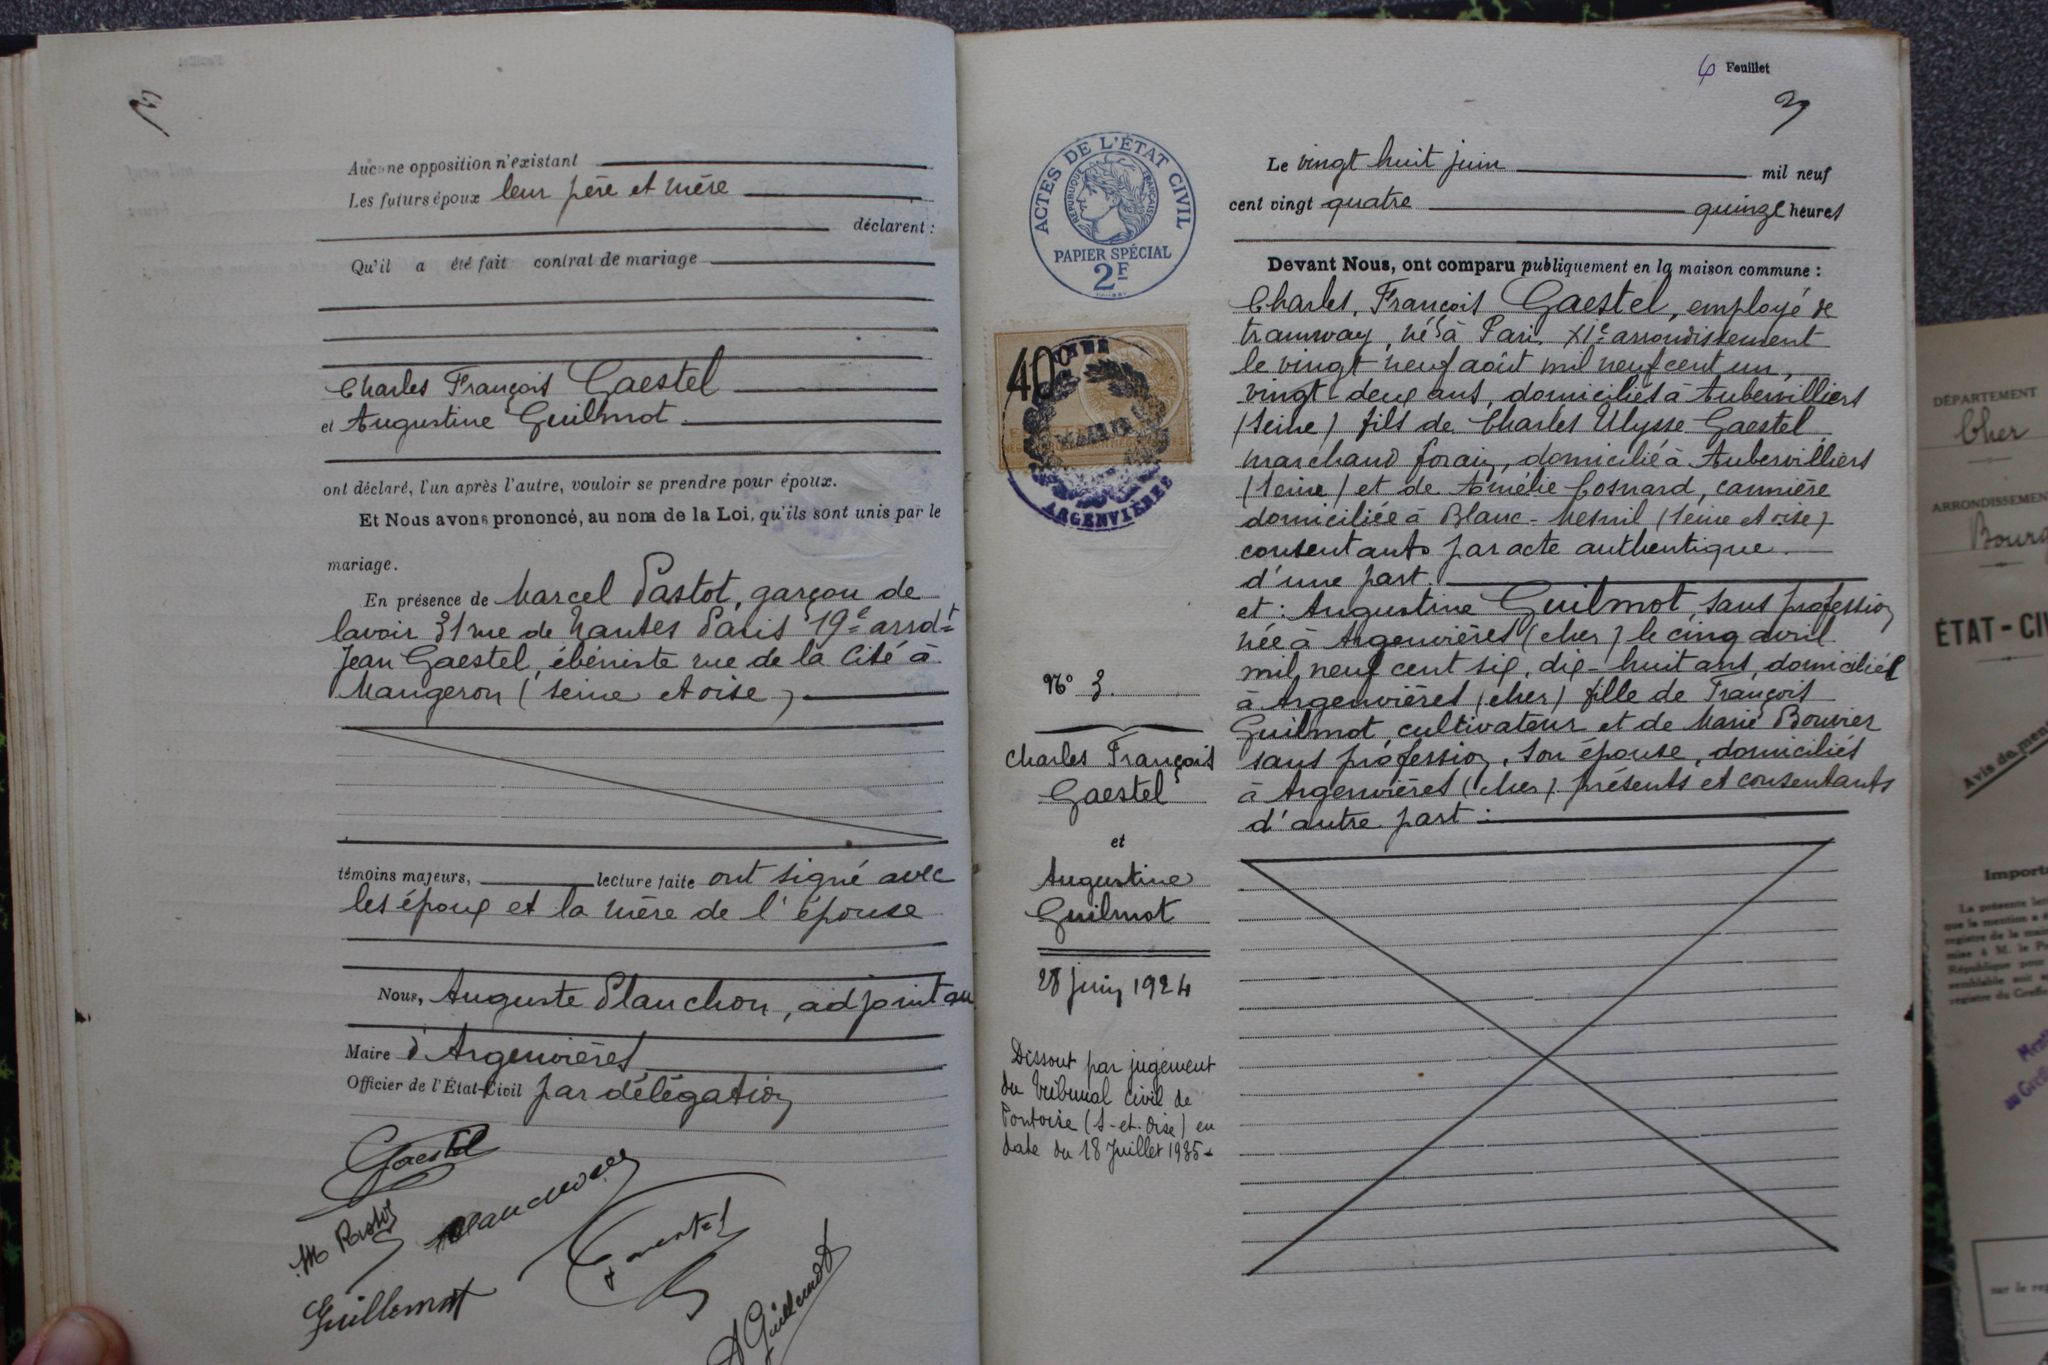 Aucune opposition n'existant
Les futurs époux leur père et mère
déclarent :
Qu'il a été fait contrat de mariage
Charles François Gaestel
et Augustine Guilmot
ont déclaré, l'un après l'autre, vouloir se prendre pour époux.
Et Nous avons prononcé, au nom de la Loi, qu'ils sont unis par le
mariage.
En présence de Marcel Pastot, garçon de
lavoir 31 rue de Nantes Paris 19e arrdt
Jean Gaestel, ébéniste rue de la Cité à
Mangeron (Seine et oise)
témoins majeurs, lecture faite ont signé avec
les époux et la mère de l'épouse
Nous, Auguste Planchon, adjoint au
Maire d'Argenvières
Officier de l'État-Civil par délégation
Gaestel
M Pastot
Guillemot
A Guillemot
4 Feuillet
ACTES DE L'ÉTAT CIVIL
RÉPUBLIQUE FRANÇAISE
PAPIER SPÉCIAL
2F
40c
MAIRIE
ARGENVIÈRES
Le vingt huit juin mil neuf
cent vingt quatre quinze heures
Devant Nous, ont comparu publiquement en la maison commune :
Charles, François Gaestel, employé de
tramway, né à Paris XIe arrondissement
le vingt neuf août mil neuf cent un,
vingt-deux ans, domiciliés à Aubervilliers
(Seine) fils de Charles Ulysse Gaestel
marchand forain, domicilié à Aubervilliers
(Seine) et de Amélie Cosnard, cannière
domiciliée à Blanc-Mesnil (Seine et oise)
consentants par acte authentique
d'une part.
et : Augustine Guilmot, sans profession
née à Argenvières (cher) le cinq avril
mil neuf cent six, dix-huit ans, domiciliée
à Argenvières (cher) fille de François
Guilmot, cultivateur et de Marie Bouvier
sans profession, son épouse, domiciliés
à Argenvières (cher) présents et consentants
d'autre part :
No 3.
Charles François
Gaestel
et
Augustine
Guilmot
28 juin 1924
Dissout par jugement
du Tribunal civil de
Pontoise (S-et-Oise) en
date du 18 Juillet 1935-
DÉPARTEMENT
Cher
ARRONDISSEMENT
ÉTAT-CI
Avis de men
Importa
La présente let
que la mention a é
registre de la mai
mise à M. le P
République pour
semblable soit
registre du Greffe
au Greffe
sur le reg